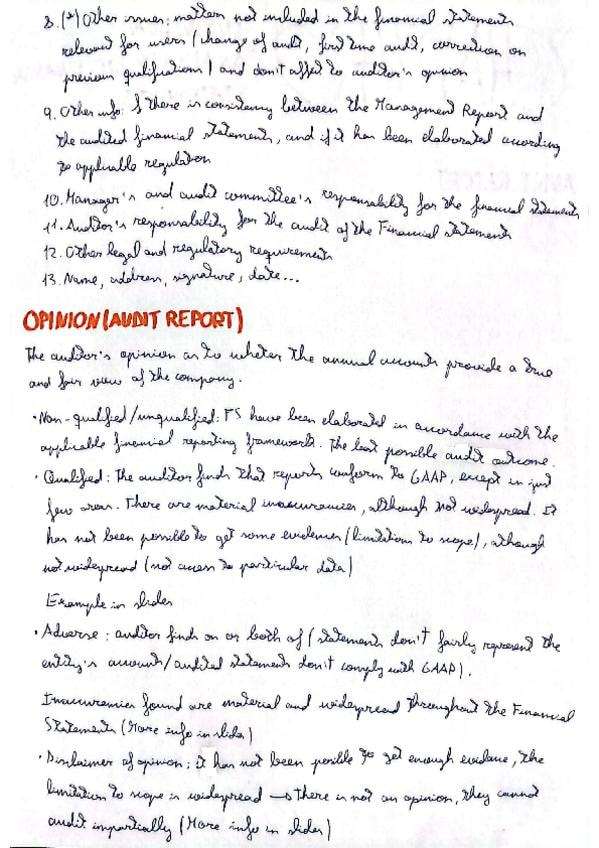 8. (*) Other issues: matters not included in the financial statements
relevant for users (change of audit, first time audit, correction on
previous qualifications) and don't affect to auditor's opinion
9. Other info: If there is consistency between the Management Report and
the audited financial statements, and if it has been elaborated according
to applicable regulation
10. Manager's and audit committee's responsability for the financial statements
11. Auditor's responsability for the audit of the Financial statements
12. Other legal and regulatory requirements
13. Name, address, signature, date...
OPINION (AUDIT REPORT)
The auditor's opinion as to wheter the annual accounts provide a true
and fair view of the company.
· Non-qualified/unqualified: FS have been elaborated in accordance with the
applicable financial reporting framework. The best possible audit outcome.
· Qualified: The auditor finds that reports conform to GAAP, except in just
few areas. There are material inaccuracies, although not widespread. It
has not been possible to get some evidences (limitations to scope), although
not widespread (not access to particular data)
Example in slides
· Adverse: auditor finds on or both of (statements don't fairly represent the
entity's accounts/audited statements don't comply with GAAP).
Inaccuracies found are material and widespread throughout the Financial
Statements (More info in slides)
· Disclaimer of opinion: it has not been posible to get enough evidence, the
limitation to scope is widespread → there is not an opinion, they cannot
audit impartially (More info in slides)